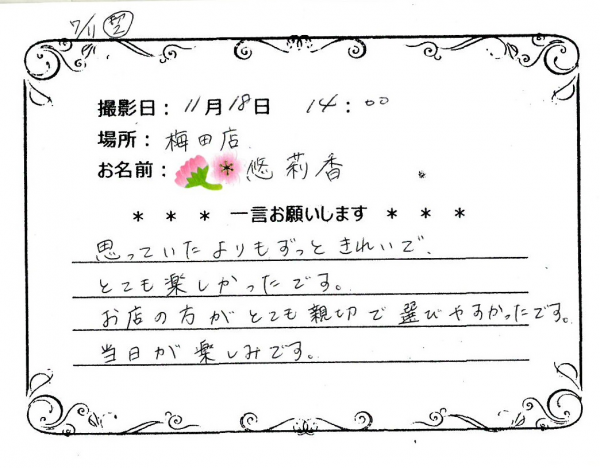 7/11
撮影日：11月18日 14：00
場所：梅田店
お名前： 悠莉香
＊ ＊ ＊ 一言お願いします ＊ ＊ ＊
思っていたよりもずっときれいで、
とても楽しかったです。
お店の方がとても親切で選びやすかったです。
当日が楽しみです。